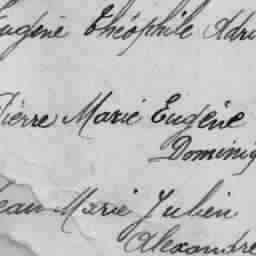 Eugène Théophile
Pierre Marie Eugène
Jean Marie Julien
Alexandre